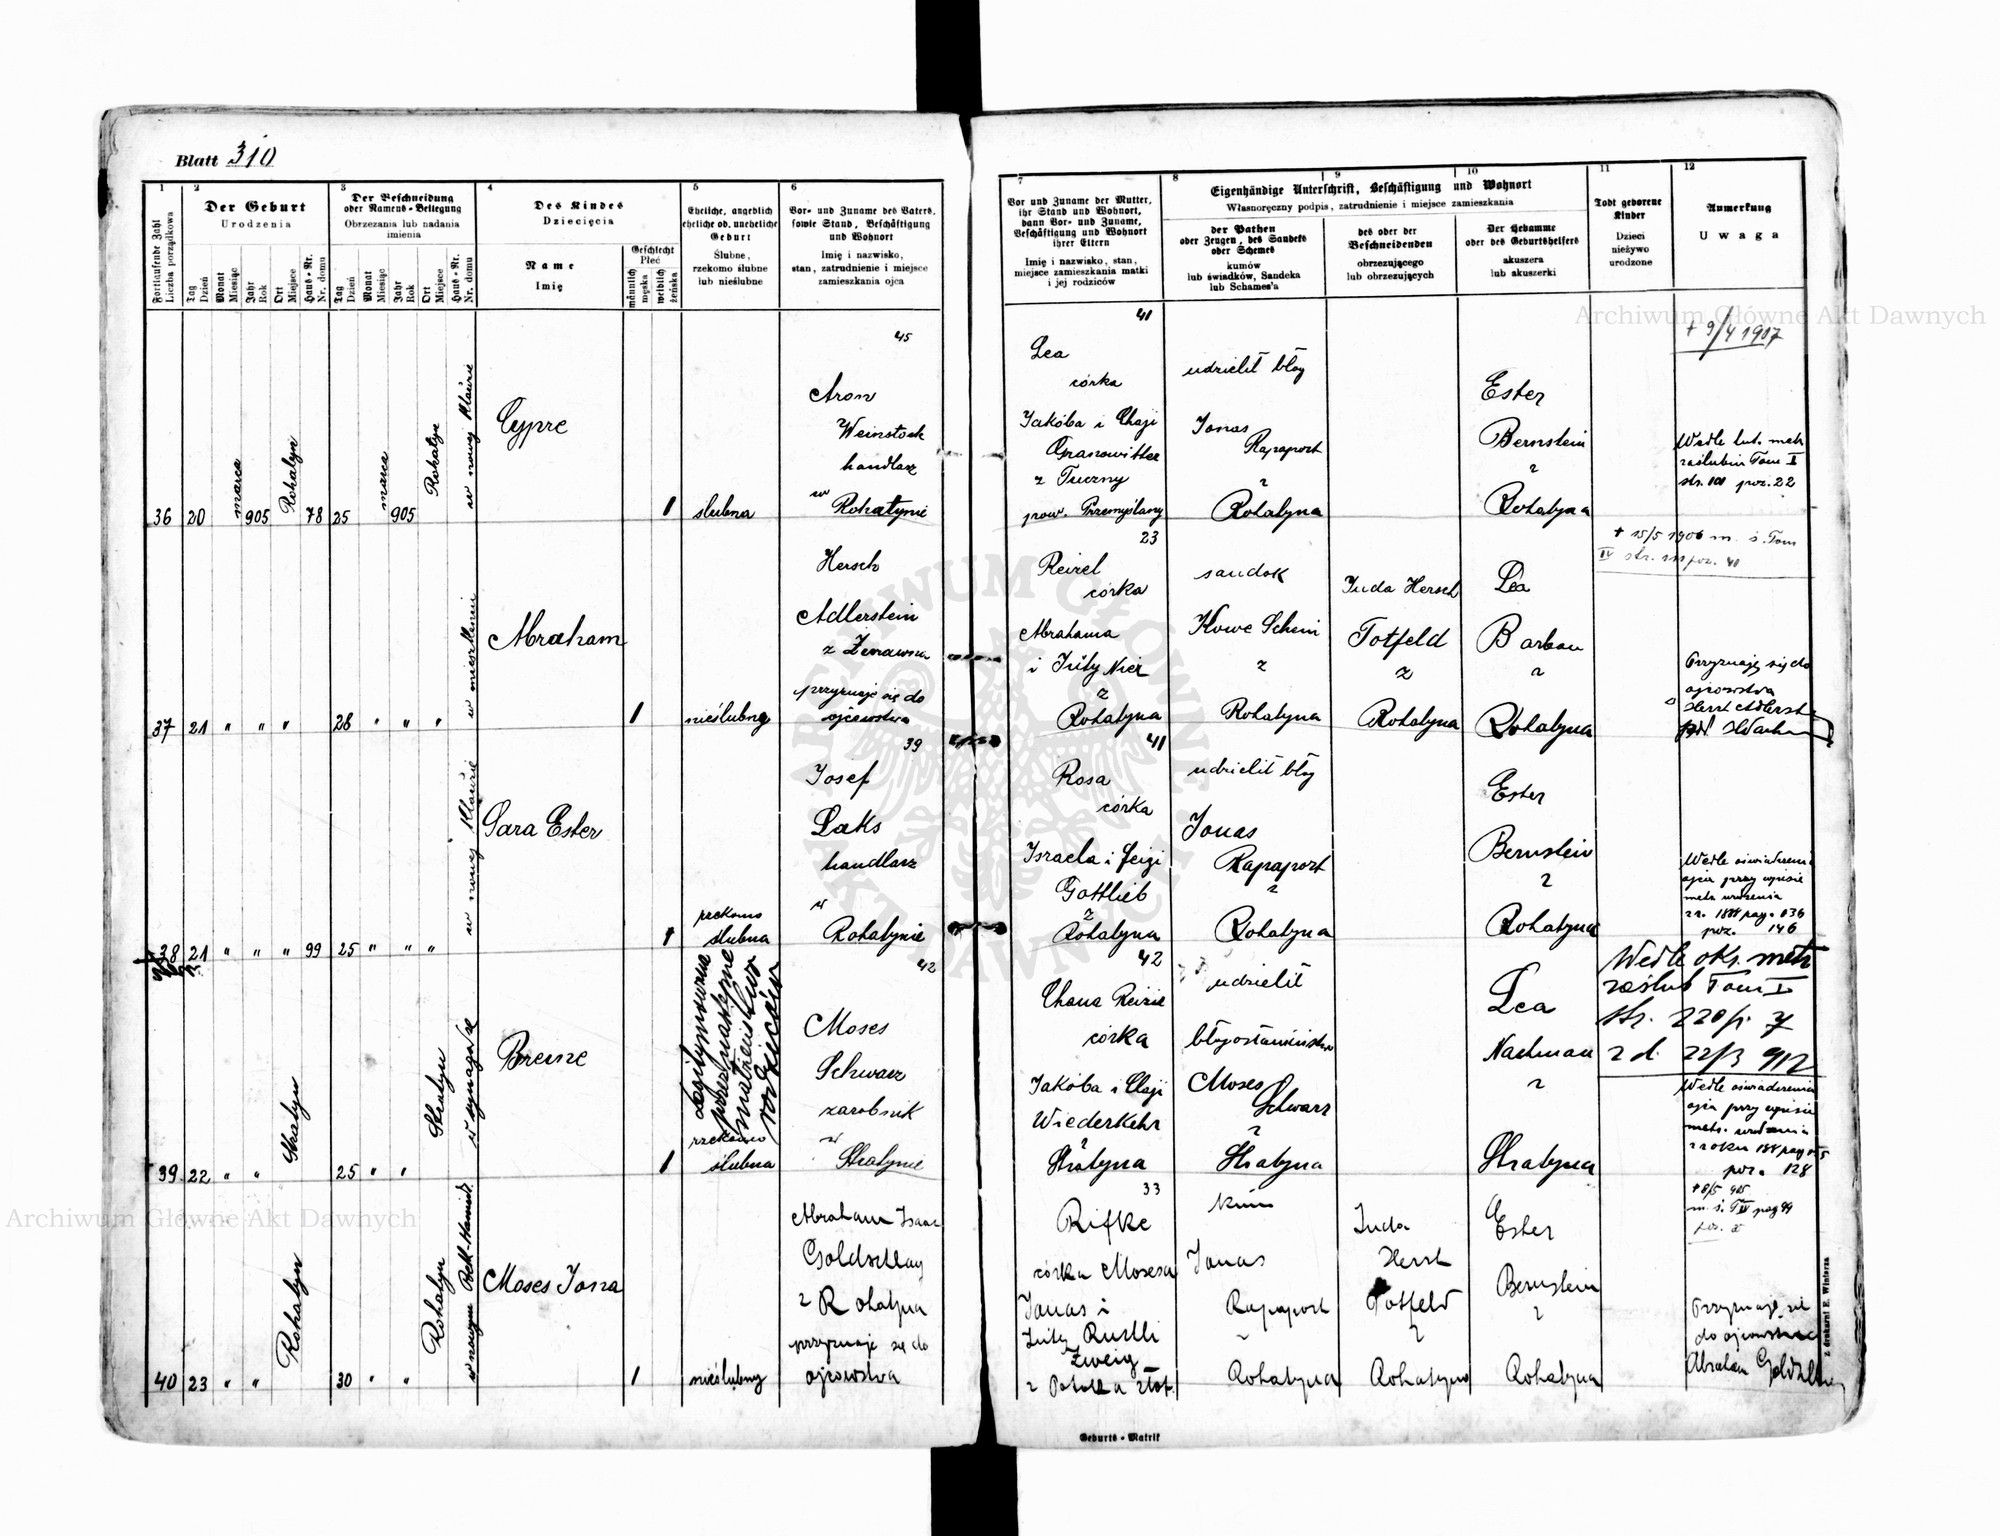 Blatt 310
1
2
3
4
5
6
Fortlaufende Zahl
Liczba porządkowa
Der Geburt
Urodzenia
Tag
Dzień
Monat
Miesiąc
Jahr
Rok
Ort
Miejsce
Haus-Nr.
Nr. domu
Der Beschneidung
oder Namens-Beilegung
Obrzezania lub nadania
imienia
Tag
Dzień
Monat
Miesiąc
Jahr
Rok
Ort
Miejsce
Haus-Nr.
Nr. domu
Des Kindes
Dziecięcia
Name
Imię
Geschlecht
Płeć
männlich
męska
weiblich
żeńska
Eheliche, angeblich
eheliche od. uneheliche
Geburt
Ślubne,
rzekomo ślubne
lub nieślubne
Vor- und Zuname des Vaters,
sowie Stand, Beschäftigung
und Wohnort
Imię i nazwisko,
stan, zatrudnienie i miejsce
zamieszkania ojca
7
8
9
10
11
12
Vor und Zuname der Mutter,
ihr Stand und Wohnort,
dann Vor- und Zuname,
Beschäftigung und Wohnort
ihrer Eltern
Imię i nazwisko, stan,
miejsce zamieszkania matki
i jej rodziców
Eigenhändige Unterschrift, Beschäftigung und Wohnort
Własnoręczny podpis, zatrudnienie i miejsce zamieszkania
der Pathen
oder Zeugen, des Sandeks
oder Schames
kumów
lub świadków, Sandeka
lub Schames'a
des oder der
Beschneidenden
obrzezującego
lub obrzezujących
Der Hebamme
oder des Geburtshelfers
akuszera
lub akuszerki
Todt geborene
Kinder
Dzieci
nieżywo
urodzone
Anmerkung
Uwaga
36 20 marca 905 Rohatyn 78 25 marca 905 Rohatyn
w nowej
Cypre
1
ślubna
45
Aron
Weinstock
handlarz
w
Rohatynie
41
Lea
córka
Jakóba i Chaji
Granowitter
z Tuczny
pow. Przemyślany
udzielił błog
Jonas
Rapaport
z
Rohatyna
Ester
Bernstein
z
Rohatyna
+ 9/4 1907
Wedle tut. metr
zaślubin Tom I
str. 101 poz. 22
37 21 " " " 28 " " "
w mieszkaniu
Abraham
1
nieślubny
Hersch
Adlerstein
z Żurawna
przyznaje się do
ojcowstwa
23
Reizel
córka
Abrahama
i Jüty Nier
z
Rohatyna
sandok
Howe Schein
z
Rohatyna
Juda Hersch
Totfeld
z
Rohatyna
Lea
Barban
z
Rohatyna
+ 15/5 1906 m. ś. Tom
IV str. 111 poz. 41
Przyznaję się do
ojcowstwa
38 21 " " " 99 25 " " "
w nowej
Sara Ester
1
rzekomo
ślubna
39
Josef
Laks
handlarz
w
Rohatynie
41
Rosa
córka
Israela i Feigi
Gottlieb
z
Rohatyna
udzielił błog
Jonas
Rapaport
z
Rohatyna
Ester
Bernstein
z
Rohatyna
Wedle oświadczenia
ojca przy wpisie
metr. urodzenia
poz. 146
39 22 " " Stratyn 25 " " Stratyn
w synagodze
Breine
1
Legitymowana
przez nastąpne
małżeństwo
rodziców
rzekomo
ślubna
42
Moses
Schwarz
zarobnik
w
Stratynie
42
Chana Reizie
córka
Jakóba i Chaji
Wiederkehr
z
Stratyna
udzielił
błogosławieństwo
Moses
Schwarz
z
Stratyna
Lea
Nachman
z
Stratyna
Wedle oks. metr
zaślub Tom I
str. 220 p. 7
z d. 22/3 912
Wedle oświadczenia
ojca przy wpisie
metr. urodzenia
poz. 128
40 23 " " Rohatyn 30 " " Rohatyn
w nowym Beth-Hamid.
Moses Jona
1
nieślubny
Abraham Isaac
Goldschlag
z Rohatyna
przyznaje się do
ojcowstwa
33
Rifke
córka Mosesa
Jonas i
Zweig
kum
Jonas
Rapaport
z
Rohatyna
Juda
Hersch
Totfeld
z
Rohatyna
Ester
Bernstein
z
Rohatyna
+ 8/5 905
m. ś. T IV pag 99
Przyznaję się
do ojcowstwa
Abraham Goldschlag
z drukarni E. Wintorza
Geburts-Matrik
Archiwum Główne Akt Dawnych
Archiwum Główne Akt Dawnych
ARCHIWUM GŁÓWNE AKT DAWNYCH